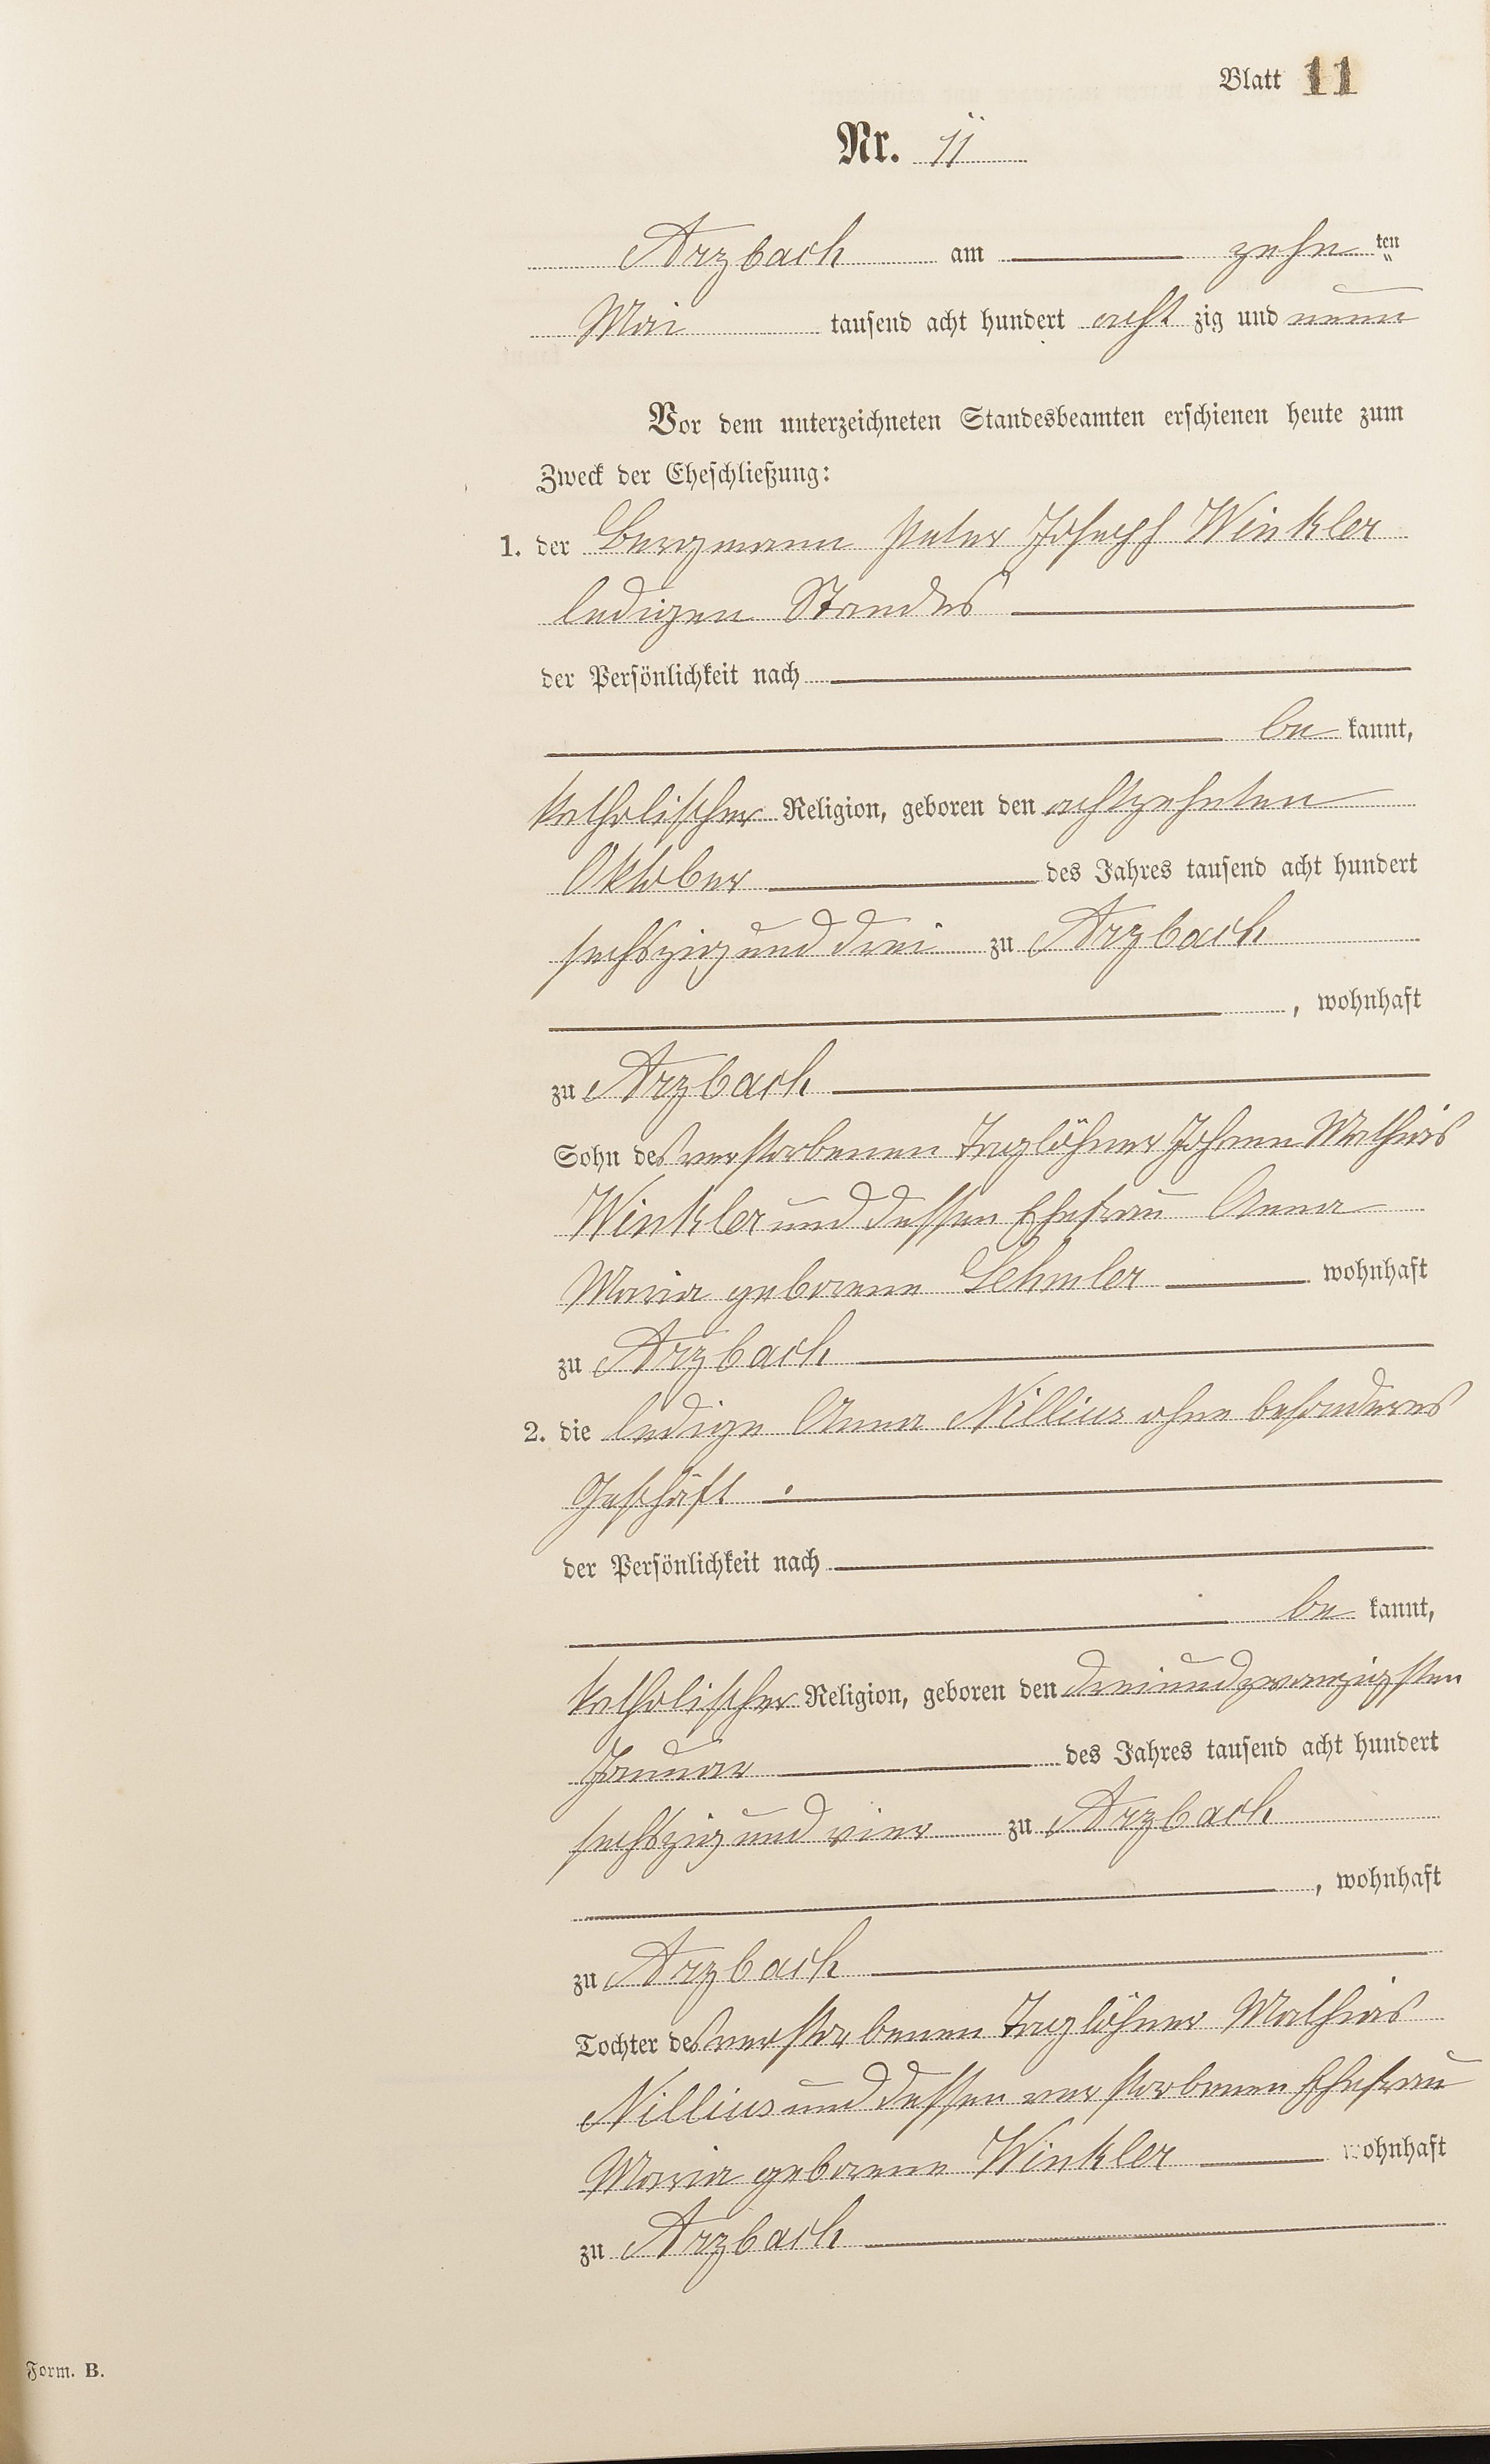 Blatt 11
Nr. 11
Arzbach am zehn ten
Mai tausend acht hundert acht zig und neun
Vor dem unterzeichneten Standesbeamten erschienen heute zum
Zweck der Eheschließung:
1. der Bergmann Peter Joseph Winkler
ledigen Standes
der Persönlichkeit nach
be kannt,
katholischer Religion, geboren den achtzehnten
Oktober des Jahres tausend acht hundert
sechszig und drei zu Arzbach
, wohnhaft
zu Arzbach
Sohn des verstorbenen Taglöhner Johann Mathias
Winkler und dessen Ehefrau Anna
Maria geborene Lehmler wohnhaft
zu Arzbach
2. die ledige Anna Nillius ohne besonderes
Geschäft
der Persönlichkeit nach
be kannt,
katholischer Religion, geboren den dreiundzwanzigsten
Januar des Jahres tausend acht hundert
sechszig und vier zu Arzbach
, wohnhaft
zu Arzbach
Tochter des verstorbenen Taglöhner Mathias
Nillius und dessen verstorbenen Ehefrau
Maria geborene Winkler wohnhaft
zu Arzbach
Form. B.